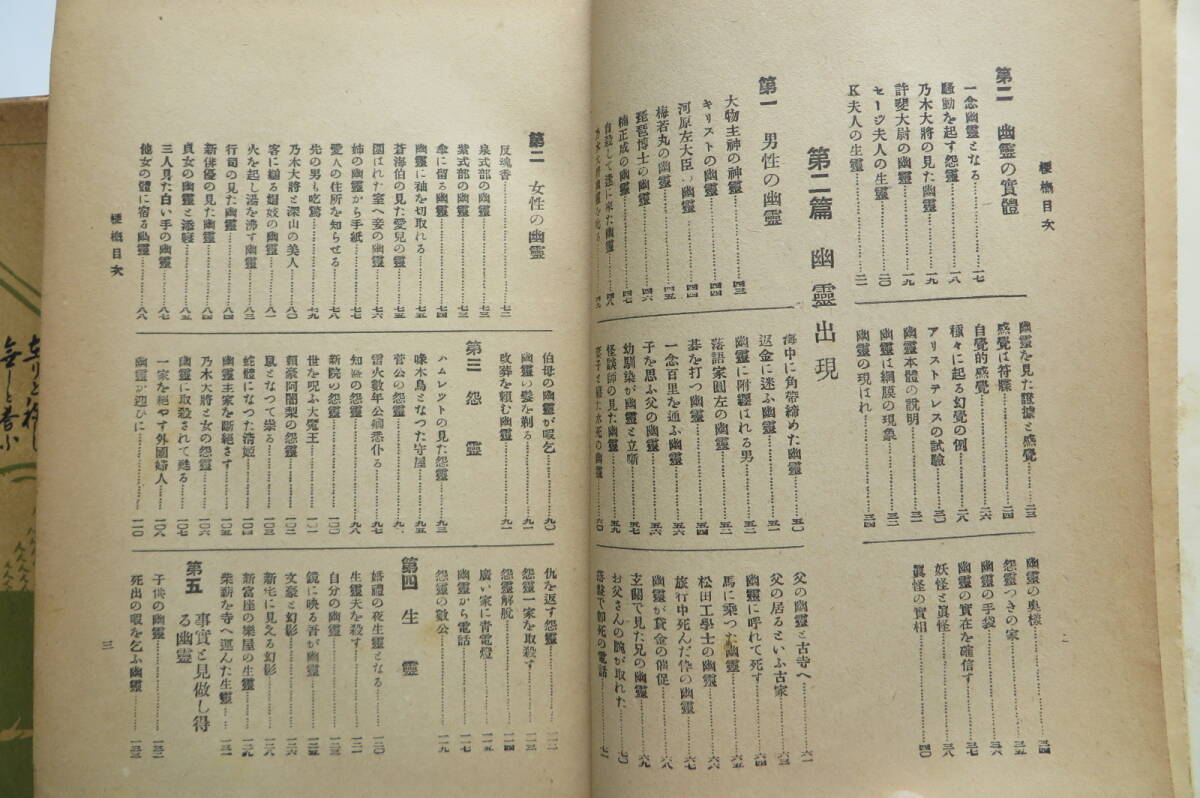 梗概目次
第二 幽靈の實體
一念幽靈となる……一七
騷動を起す怨靈……一八
乃木大將の見た幽靈……一九
許斐大尉の幽靈……一九
セージ夫人の生靈……二〇
K夫人の生靈……二一
幽靈を見た證據と感覺……二三
感覺は符牒……二五
自覺的感覺……二六
種々に起る幻覺の例……二八
アリストテレスの試驗……三〇
幽靈本體の說明……三一
幽靈は網膜の現象……三二
幽靈の現はれ……三四
幽靈の奥樣……三四
怨靈つきの家……三五
幽靈の手袋……三六
幽靈の實在を確信す……三七
妖怪と眞怪……三八
眞怪の實相……四〇
第二篇 幽靈出現
第一 男性の幽靈
大物主神の神靈……四三
キリストの幽靈……四四
河原左大臣の幽靈……四四
梅若丸の幽靈……四五
琵琶博士の幽靈……四六
楠正成の幽靈……四七
自殺して逢に來た幽靈……四八
海中に角帶締めた幽靈……五〇
返金に迷ふ幽靈……五一
幽靈に附纒はれる男……五二
落語家圓左の幽靈……五二
碁を打つ幽靈……五四
一念百里を通ふ幽靈……五六
子を思ふ父の幽靈……五六
幼馴染が幽靈と立噺……五七
怪談師の見た幽靈……五九
父の幽靈と古寺へ……六一
父の居るといふ古家……六三
幽靈に呼れて死す……六四
馬に乘つた幽靈……六五
松田工學士の幽靈……六六
旅行中死んだ伜の幽靈……六七
幽靈が貸金の催促……六八
玄關で見た兄の幽靈……六九
お父さんの腕が取れた……七〇
二
第二 女性の幽靈
反魂香……七二
泉式部の幽靈……七三
紫式部の幽靈……七三
傘に宿る幽靈……七四
幽靈に袖を切取れる……七五
蒼海伯の見た愛兒の靈……七五
圍はれた室へ妾の幽靈……七六
姉の幽靈から手紙……七七
愛人の住所を知らせる……七八
先の男も吃驚……七九
乃木大將と深山の美人……八〇
客に縋る娼妓の幽靈……八一
火を起し湯を沸す幽靈……八三
行司の見た幽靈……八四
新俳優の見た幽靈……八四
貞女の幽靈と添寢……八五
三人見た白い手の幽靈……八七
他女の體に宿る幽靈……八八
伯母の幽靈が暇乞……九〇
幽靈の髮を剃る……九一
改葬を賴む幽靈……九二
第三 怨靈
ハムレツトの見た怨靈……九三
啄木鳥となつた守屋……九五
菅公の怨靈……九
雷火數年公卿悉仆る……九七
知盛の怨靈……九八
新院の怨靈……一〇〇
世を呪ふ大魔王……一〇一
賴豪阿闍梨の怨靈……一〇二
鼠となつて祟る……一〇三
蛇體になつた淸姬……一〇四
幽靈主家を斷絕さす……一〇五
乃木大將と女の怨靈……一〇六
幽靈に取殺されて甦る……一〇七
一家を絕やす外國婦人……一一〇
幽靈が迎ひに……一一〇
仇を返す怨靈……一一二
怨靈一家を取殺す……一一三
怨靈解脫……一一四
廣い家に靑電燈……一一五
幽靈から電話……一一七
怨靈の數公……一一九
第四 生靈
婚禮の夜生靈となる……一二〇
生靈夫を殺す……一二一
自分の幽靈……一二三
鏡に映る吾が幽靈……一二五
文豪と幻影……一二六
新宅に見える幻影……一二六
新富座の樂屋の生靈……一二九
柴薪を寺へ運んだ生靈……一三一
第五 事實と見做し得る幽靈
子供の幽靈……一三二
死出の暇を乞ふ幽靈……一三三
梗概目次
三